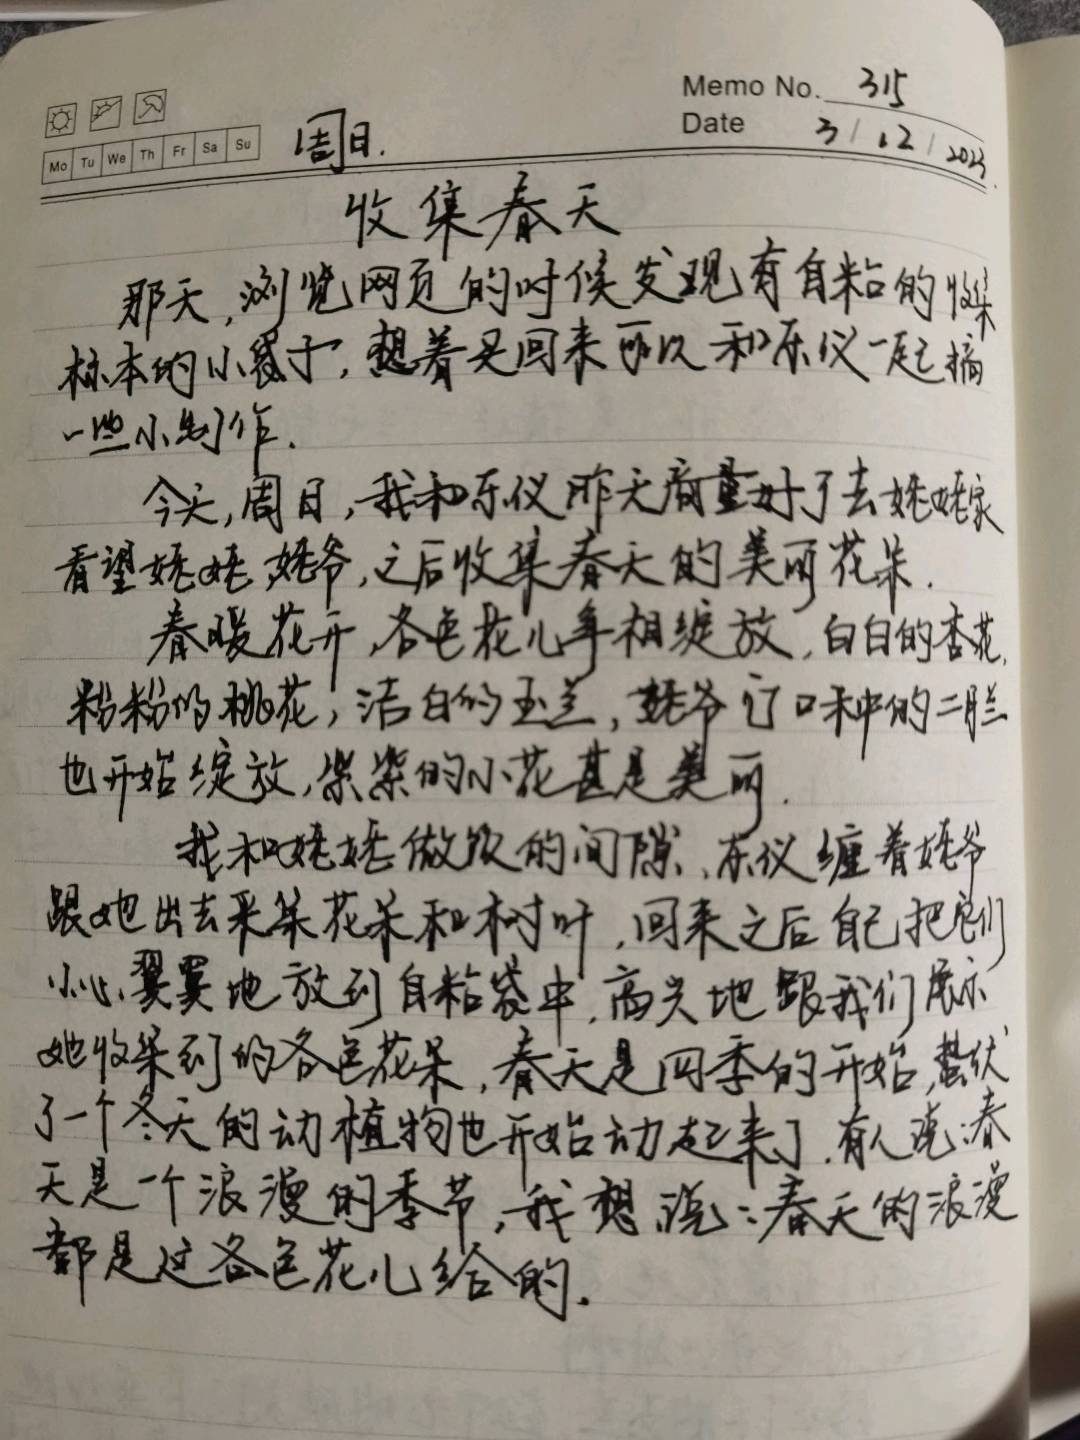 Memo No. 315
Mo Tu We Th Fr Sa Su 周日. Date 3/12/2023.
收集春天
那天,浏览网页的时候发现有自粘的收集
标本的小袋子,想着买回来可以和乐仪一起搞
一些小制作.
今天,周日,我和乐仪昨天商量好了去姥姥家
看望姥姥姥爷,之后收集春天的美丽花朵.
春暖花开,各色花儿争相绽放,白白的杏花,
粉粉的桃花,洁白的玉兰,姥爷口中的二月兰
也开始绽放,紫紫的小花甚是美丽.
我和姥姥做饭的间隙,乐仪缠着姥爷
跟她出去采集花朵和树叶,回来之后自己把它们
小心翼翼地放到自粘袋中,高兴地跟我们展示
她收集到的各色花朵,春天是四季的开始,蛰伏
了一个冬天的动植物也开始动起来了.有人说:春
天是一个浪漫的季节,我想说:春天的浪漫
都是这各色花儿给的.